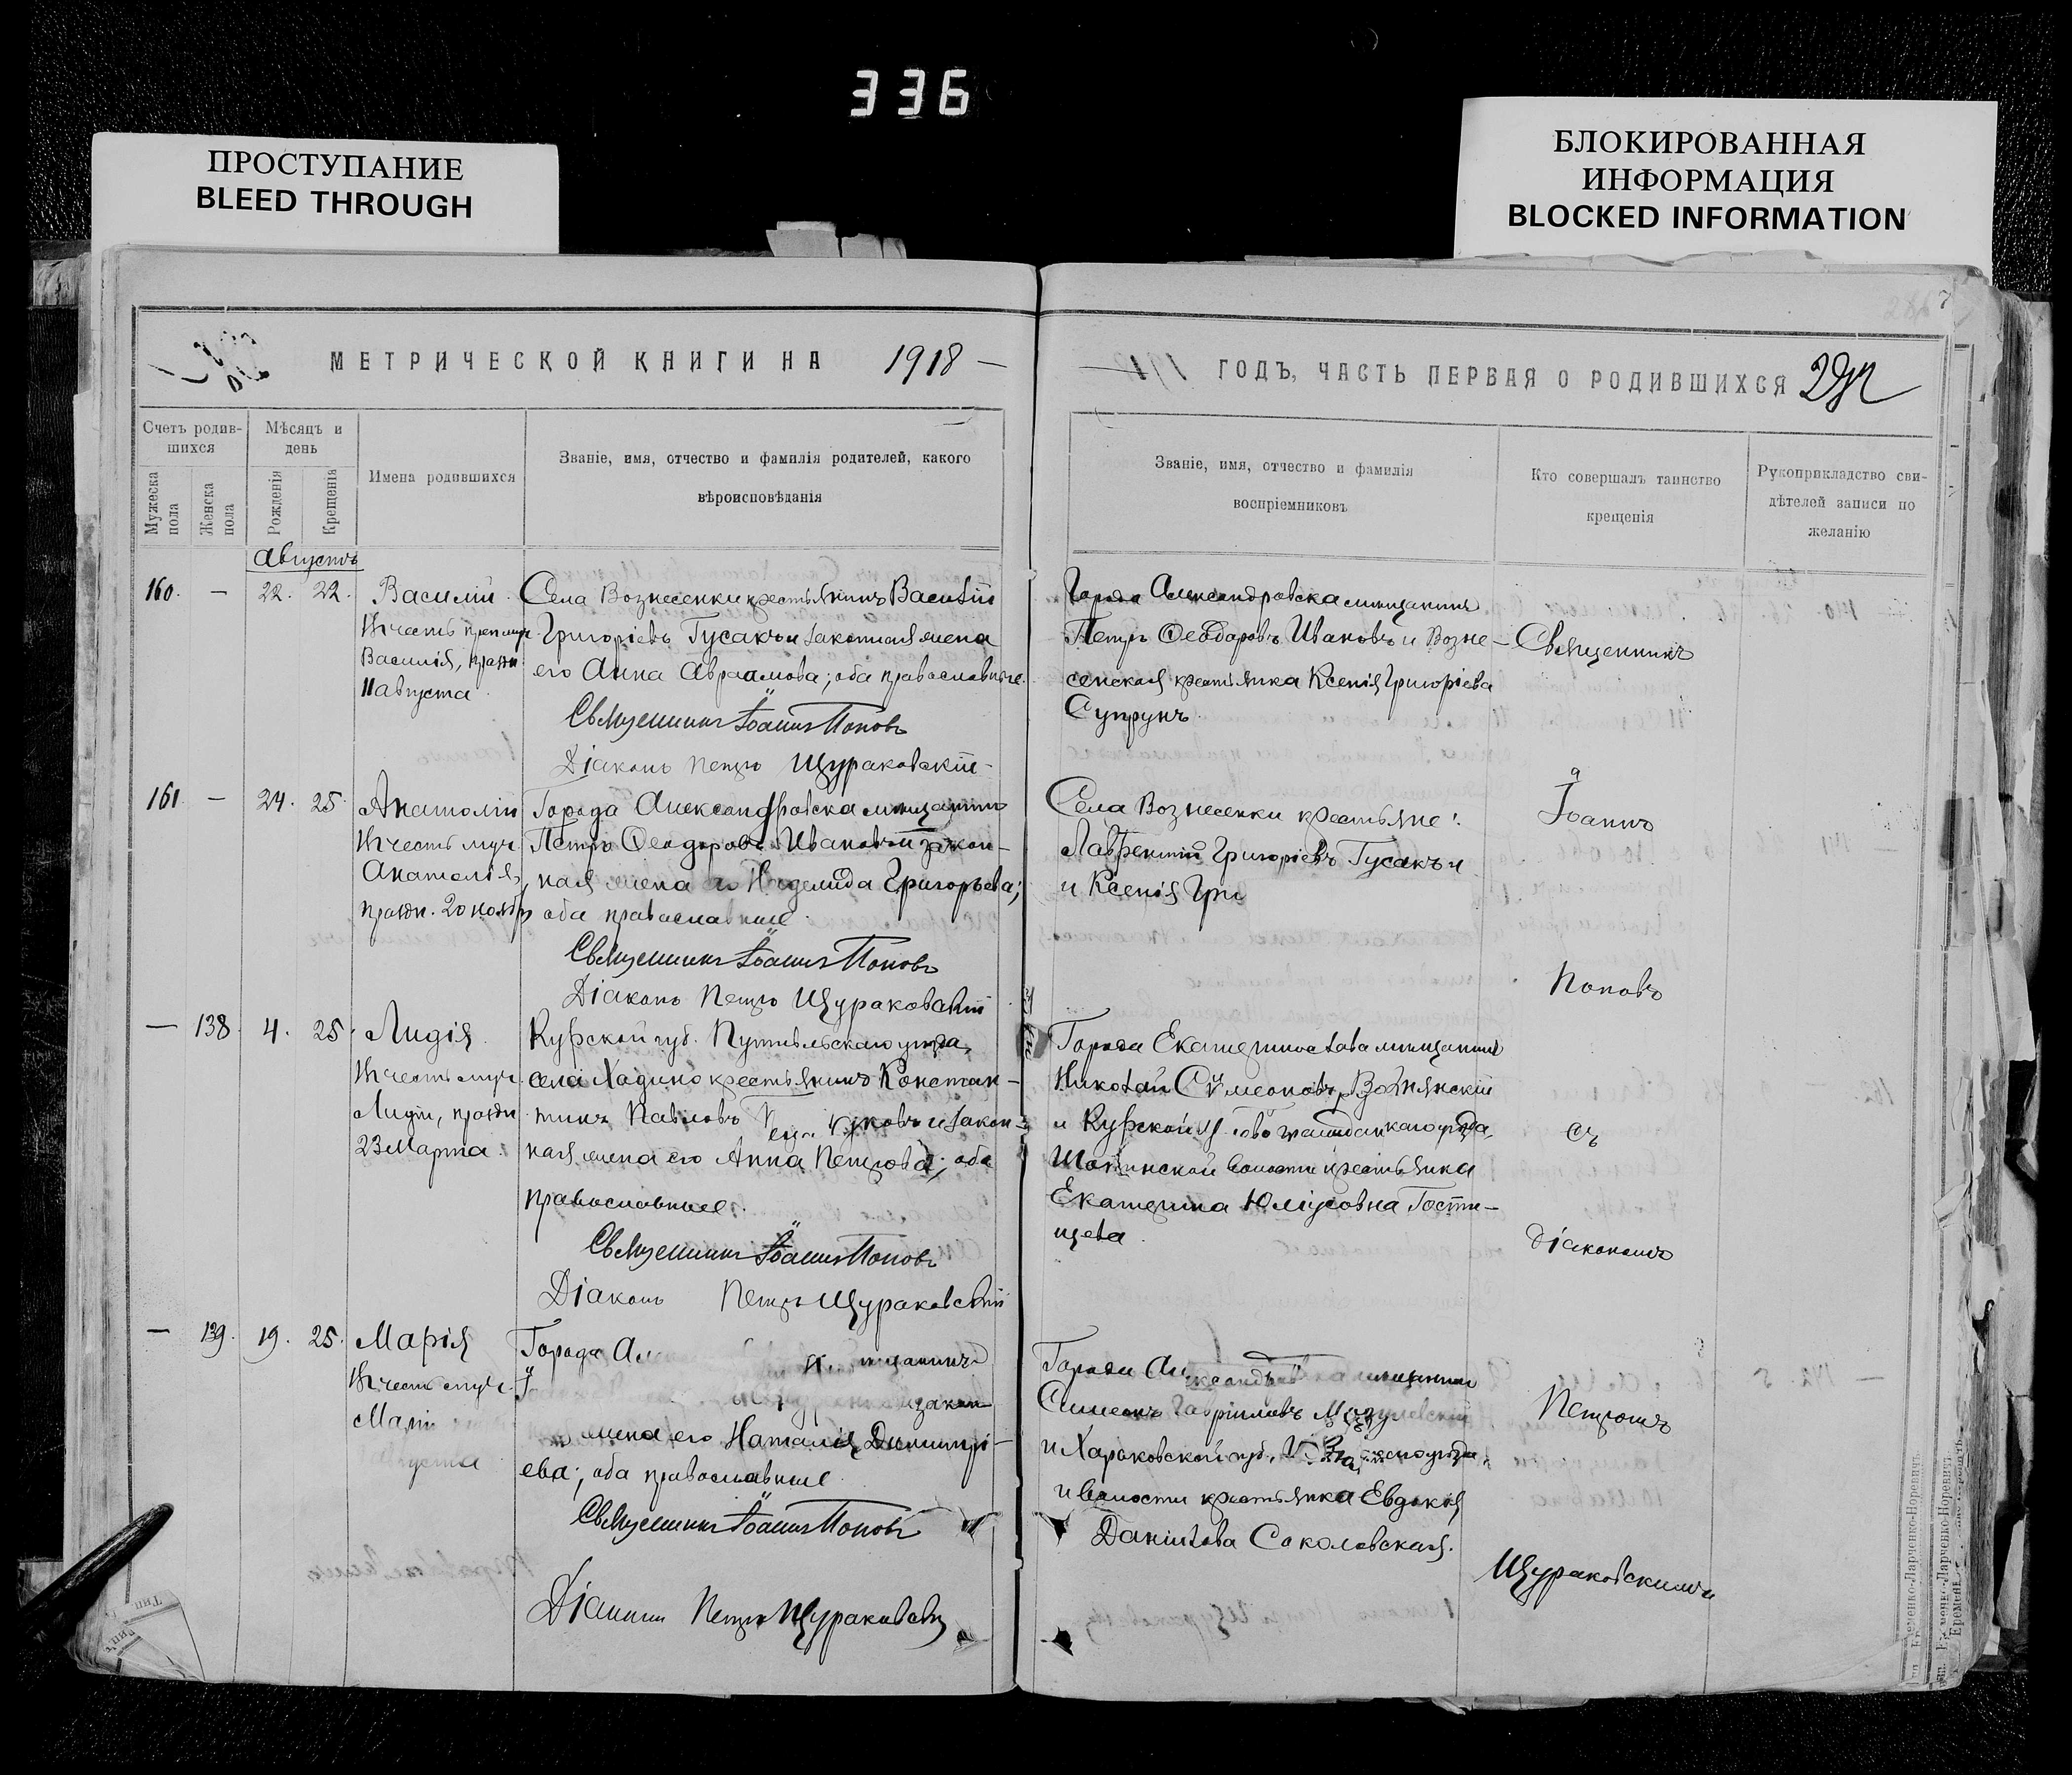 336
ПРОСТУПАНИЕ
BLEED THROUGH
БЛОКИРОВАННАЯ
ИНФОРМАЦИЯ
BLOCKED INFORMATION
МЕТРИЧЕСКОЙ КНИГИ НА 1918
Счетъ родив-
шихся
Мужеска
пола
Женска
пола
Мѣсяцъ и
день
Рожденія
Крещенія
Имена родившихся
Званіе, имя, отчество и фамилія родителей, какого
вѣроисповѣданія
Августъ
160. — 22. 22. Василій
Въ честь преп. муч.
Василія, праздн.
11 августа.
Села Вознесенки крестьянинъ Василій
Григоріевъ Гусакъ и законная жена
его Анна Авраамова; оба православные.
Священникъ Іоаннъ Поповъ
Діаконъ Петръ Щураковскій
161 — 24. 25. Анатолій
Въ честь муч.
Анатолія,
праздн. 20 ноября
Города Александровска мѣщанинъ
Петръ Ѳеодоровъ Ивановъ и закон-
ная жена его Григорьева;
оба православные.
Священникъ Іоаннъ Поповъ
Діаконъ Петръ Щураковскій
— 138. 4. 25. Лидія
Въ честь муч.
Лидіи, праздн.
23 Марта.
Курской губ. Путивльскаго уѣзда,
села Ходино крестьянинъ Констан-
тинъ Павловъ и закон-
ная жена его Анна Петрова; оба
православные.
Священникъ Іоаннъ Поповъ
Діаконъ Петръ Щураковскій
— 139. 19. 25. Марія
Въ честь муч.
Маріи
августа
Города мѣщанинъ
закон
жена его Наталія Димитрі-
ева; оба православные.
Священникъ Іоаннъ Поповъ
Діаконъ Петръ Щураковскій
ГОДЪ, ЧАСТЬ ПЕРВАЯ О РОДИВШИХСЯ
Званіе, имя, отчество и фамилія
воспріемниковъ
Кто совершалъ таинство
крещенія
Рукоприкладство сви-
дѣтелей записи по
желанію
Города Александровска мѣщанинъ
Петръ Ѳеодоровъ Ивановъ и Возне-
сенская крестьянка Ксенія Григоріева
Супрунъ.
Села Вознесенки крестьяне:
Лаврентій Григоріевъ Гусакъ и
и Ксенія Гри
Города Екатеринослава мѣщанинъ
Николай Сѵмеоновъ
и Курской уѣзда,
волости крестьянка
Екатерина Юліусовна Гости-
щева.
Города мѣщанинъ
Симеонъ Гавріиловъ
и Харьковской губ., уѣзда
и волости крестьянка Евдокія
Даніилова Соколовская.
Священникъ
Іоаннъ
Поповъ
съ
діакономъ
Петромъ
Щураковскимъ